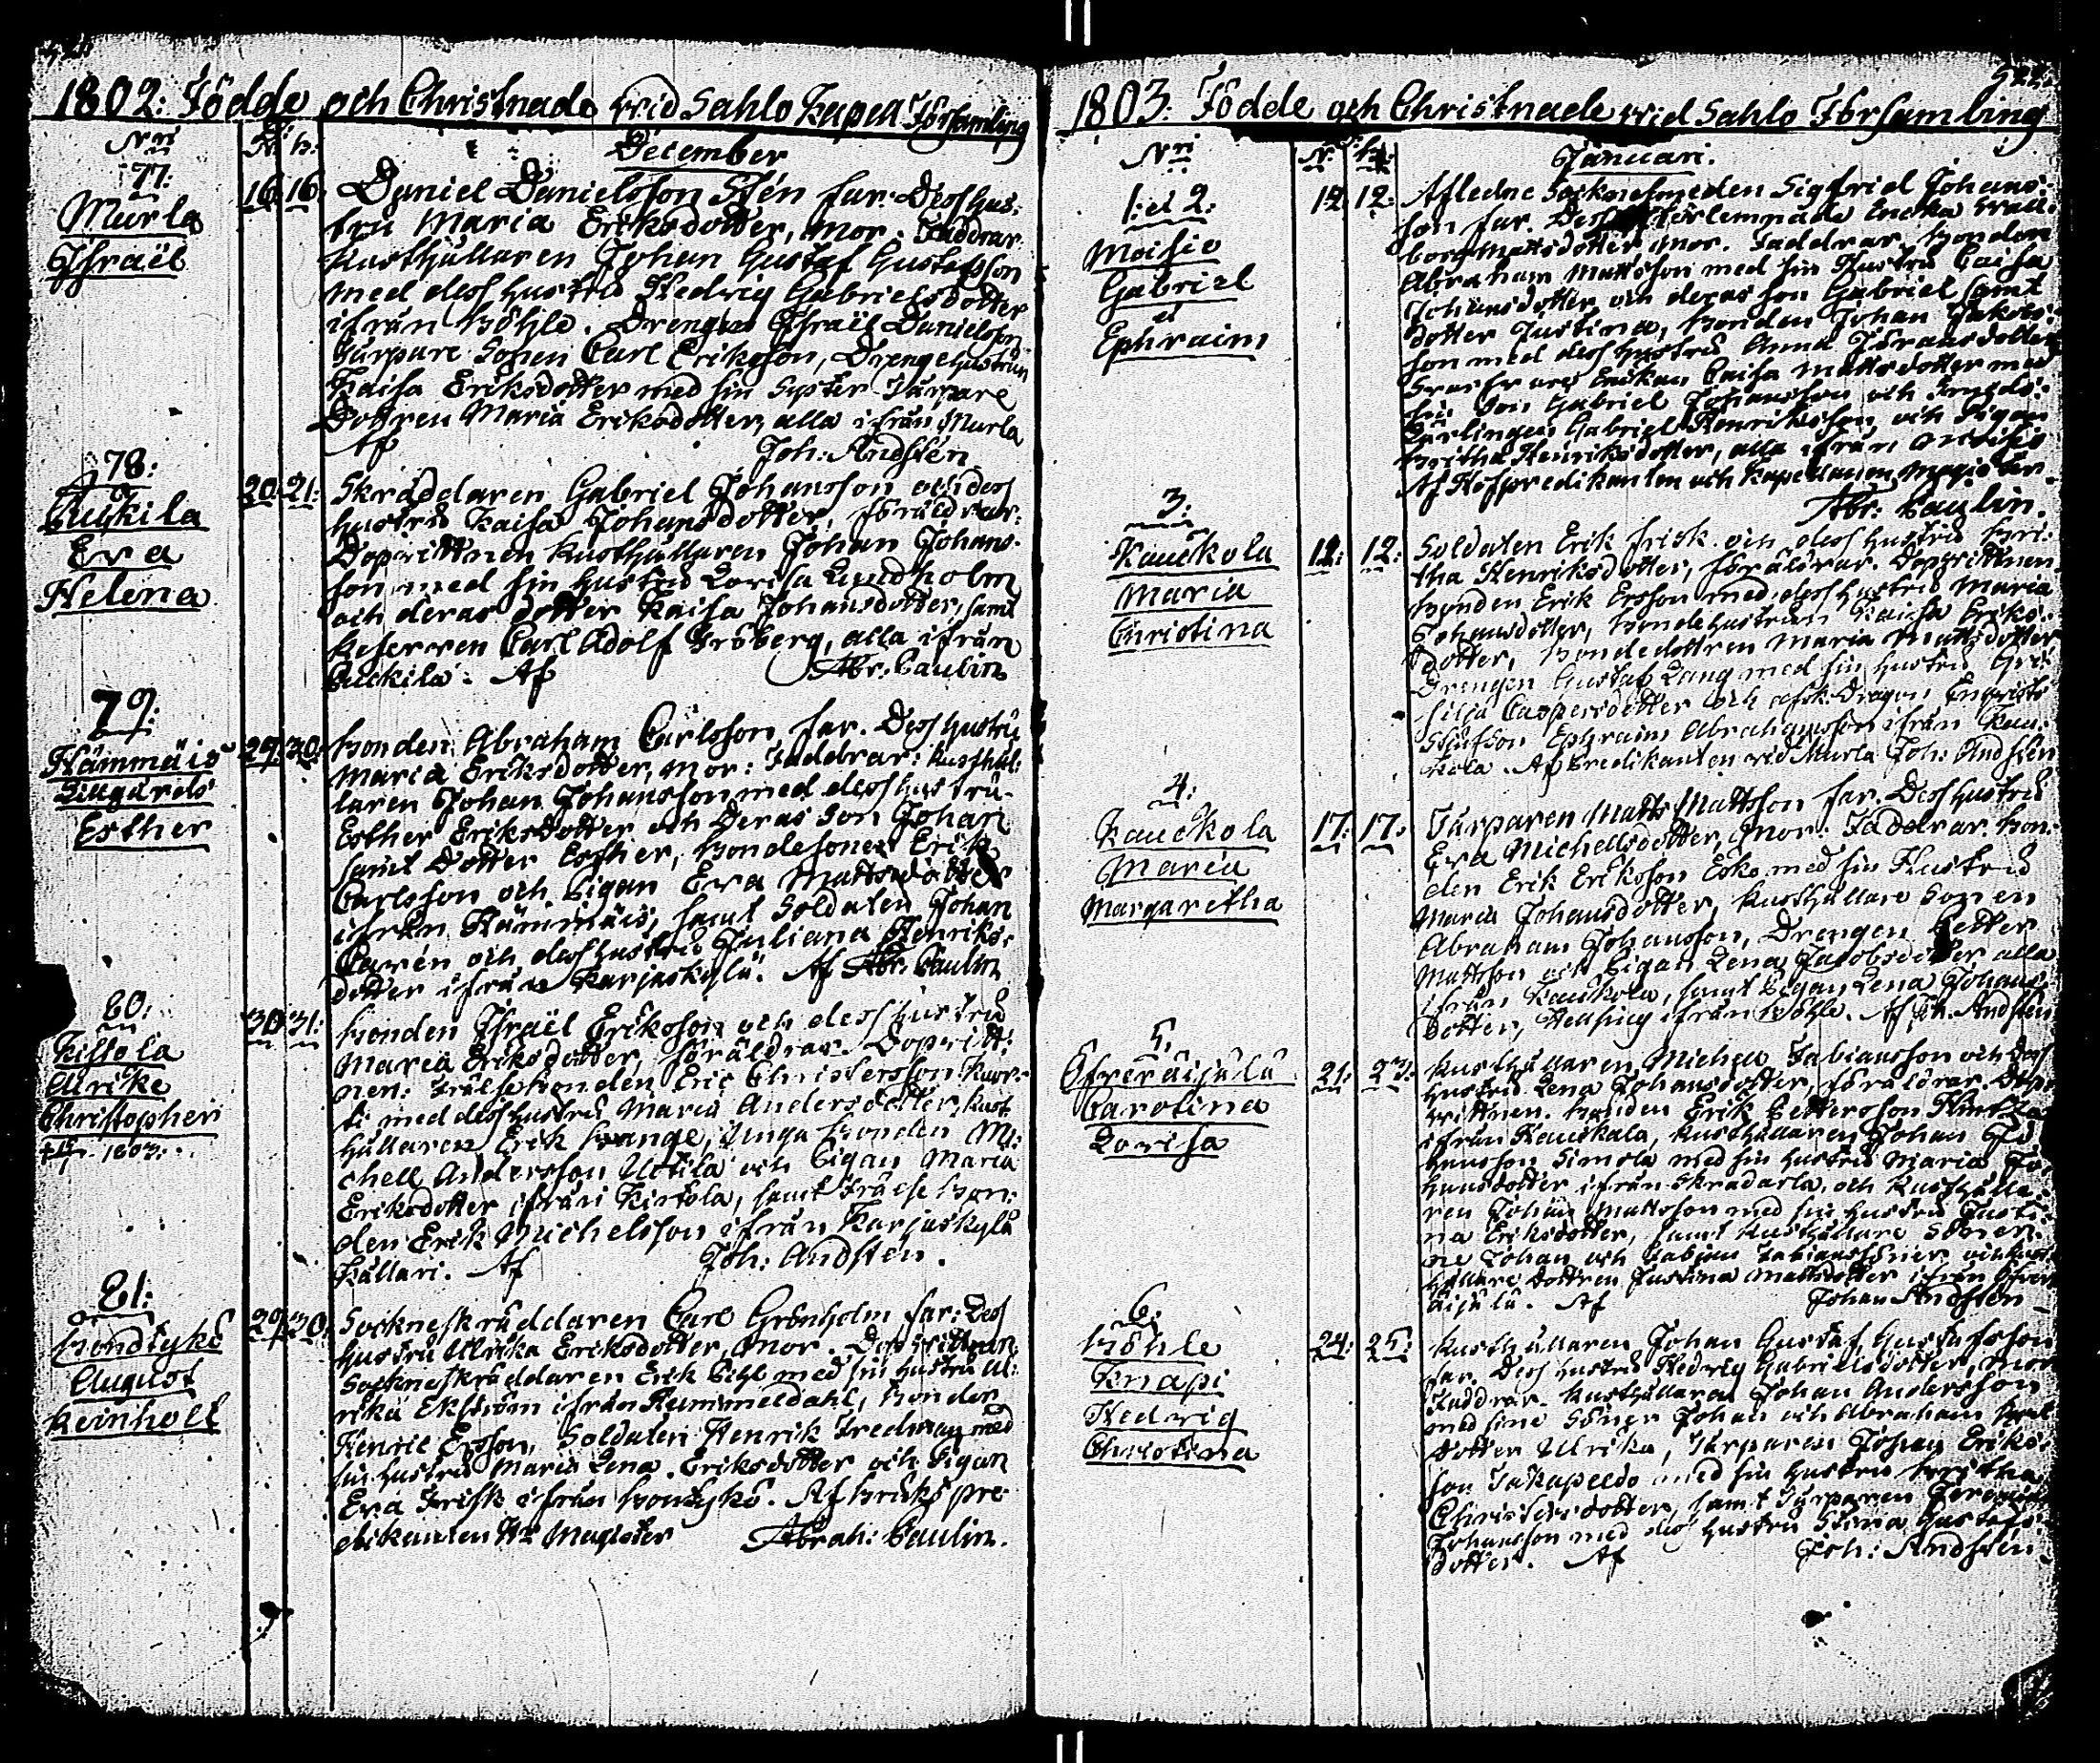 1802: Födde och Christnade wid Sahlo Kapell Församling
Nri N. b:
December
77:
Murla
Israël
16 16:
Daniel Danielsson Stén far: Dess hus:
tru Maria Eriksdotter, Mor. Faddrar
Rusthållaren Johan Gustaf Gustafsson
med dess hustru Hedvig Gabrielsdotter
ifrån Böhle. Drengen Israël Danielsson
Torpare Sonen Carl Eriksson, Drenge hustrun
Kaisa Eriksdotter med sin Syster Torpare
Dottren Maria Eriksdotter, alla ifrån Murla
Af Joh: Andstén
78:
Puckila
Eva
Helena
20: 21:
Skräddaren Gabriel Johansson och dess
hustru Kaisa Johansdotter, föräldrar:
Dopvittnen Rusthållaren Johan Johans-
son med sin hustru Lovisa Lundholm
och deras dotter Kaisa Johansdotter, samt
Carl Adolf Fröberg, alla ifrån
Puckila. Af Abr: Paulin
79:
Hämmäis
Esther
29: 30:
Bonden Abraham Carlsson, far. Dess hustru
Maria Eriksdotter, Mor: Faddrar: Rusthål:
laren Johan Johansson med dess hustru
Esther Eriksdotter och Deras Son Johan
samt Dotter Esther, Bondesonen Erik
Carlsson och Pigan Eva Mattsdotter
ifrån Hämmäis, samt Soldaten Johan
Parén och dess hustru Juliana Henriks-
dotter ifrån Karjaskylä. Af Abr: Paulin
80:
Kistola
Ulrike
Christopher
1803.
30 31:
Bonden Israël Eriksson och dess hustru
Maria Eriksdotter, föräldrar. Dopvitt:
nen: Frälsebonden Eric Christersson
med dess hustru Maria Andersdotter, Rust
hållaren Erik Brange, unga Bonden Mi:
chell Andersson Uotila och Pigan Maria
Eriksdotter ifrån Kistola, samt Frälse Bon:
den Erik Michelsson ifrån Karjaskylä
Källari. Af Joh: Andsten.
81:
Bondtykö
August
Reinholt
29 30:
Sockneskräddaren Carl Grönholm far: Dess
hustru Ulrika Eriksdotter, Mor. Dopvittnen
Sockneskräddaren Erik Pihl med sin hustru Ul:
rika Ekström ifrån Rummeldahl, Bonden
Henric Ersson, Soldaten Henrik Fredman med
sin hustru Maria Lena Eriksdotter och Pigan
Eva Frisk ifrån Bondtykö. Af Bruks pre
dikanten Hr Magister Abrah: Paulin.
1803: Födde och Christnade wid Sahlo Församling
522
Nri N. b:
Januari.
1: et 2:
Moisio
Gabriel
et
Ephraim
12 12:
Afledne Socknesmeden Sigfrid Johans:
son far. Dess efterlemnade Encka Wall:
borg Mattsdotter Mor. Faddrar. Bonden
Abraham Mattsson med sin Hustru Caisa
Johansdotter och deras son Gabriel samt
Dotter Justina, Bonden Johan Jakobs:
son med dess hustru Anna Johansdotter
Enkan Caisa Mattsdotter med
sin Son Gabriel Johansson och
Gabriel Henriksson, och Pigan
Britha Henriksdotter, alla ifrån Moisio
Af Hofpredikanten och Kapellanen Magister
Abr: Paulin.
3:
Kauckola
Maria
Christina
12: 12:
Soldaten Erik Frisk och dess hustru Bri:
tha Henriksdotter, föräldrar. Dopvittnen
Bonden Erik Ersson med dess hustru Maria
Johansdotter, Bondehustrun Kaisa Eriks-
dotter, Bondedottren Maria Mattsdotter
Drengen Gustaf Lang med sin hustru
Caspersdotter och Dragon
Ephraim Abrahamsson ifrån Kau:
kola. Af Predikanten vid Murla Joh: Andsten
4:
Kauckola
Maria
Margaretha
17: 17:
Torparen Matts Mattsson far. Dess hustru
Eva Michelsdotter, Mor: Faddrar. Bon:
den Erik Eriksson Esko med sin Hustru
Maria Johansdotter, Rusthållare Sonen
Abraham Johansson, Drengen Petter
Mattsson och Pigan Lena Jacobsdotter alla
ifrån Kauckola, samt Pigan Lena Johans-
dotter, Helsing ifrån Böhle. Af Joh. Andsten
5.
Öfveräijälä
Carolina
Lovisa
21: 23:
Rusthållaren Michell Fabiansson och Dess
hustru Lena Johansdotter, föräldrar. Dop:
vittnen. Bonden Erik Pettersson
ifrån Kauckala, Rusthållaren Johan Jo:
hansson Simola med sin hustru Maria Jo:
hansdotter ifrån Skradarla, och Rusthålla:
ren Johan Mattsson med sin hustru Justi:
na Eriksdotter, samt Rusthållare Söner:
ne Johan och Fabian Fabianssöner och Rust
hållare Dottren Justina Mattsdotter ifrån Öfver
äijälä. Af Johan Andsten
6:
Böhle
Knapi
Hedvig
Christina
24: 25:
Rusthållaren Johan Gustaf Gustafsson
far. Dess hustru Hedvig Gabrielsdotter, Mor
Faddrar. Rusthållaren Johan Andersson
med sine Söner Johan och Abraham samt
Dotter Ulrika, Torparen Johan Eriks-
son med sin hustru Britha
Christersdotter, samt Torparen Jeremias
Johansson med dess hustru Stina Gustafs-
dotter. Af Joh: Andstén